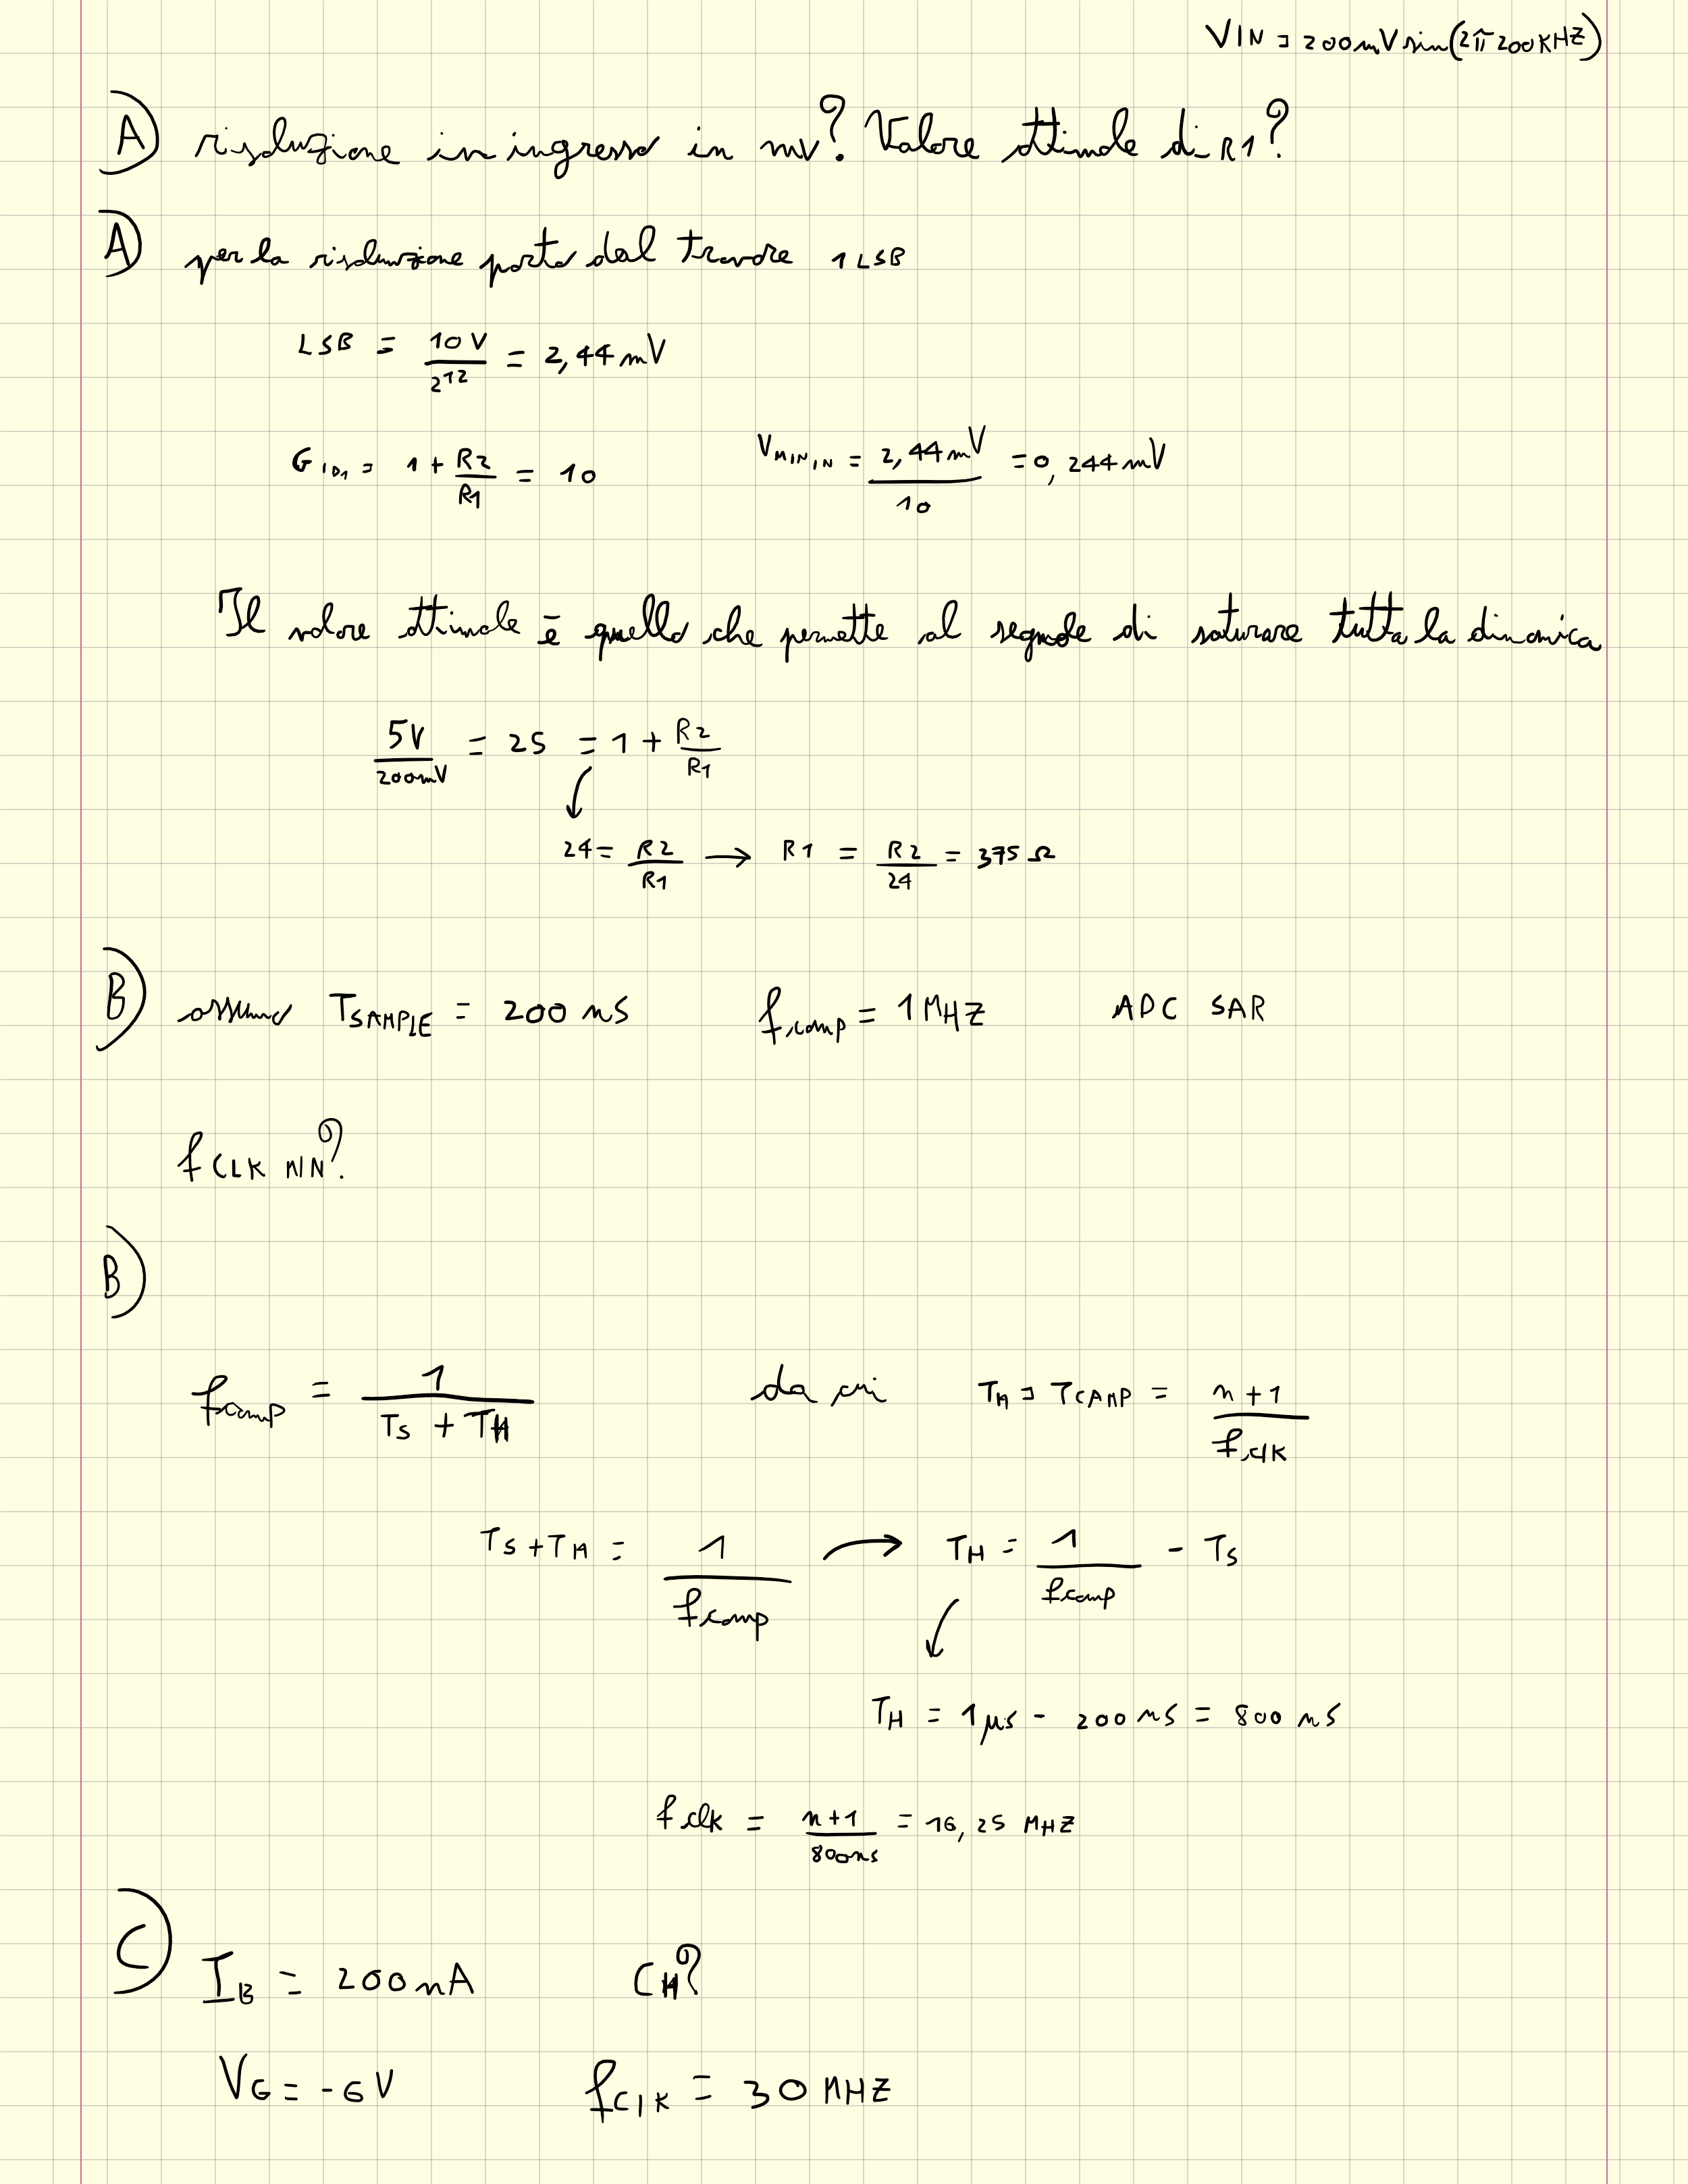 VIN = 200mV sin(2π 200KHZ)
A) risoluzione in ingresso in mV? Valore ottimale di R1?
A) per la risoluzione parto dal trovare 1 LSB
LSB = 10 V / 2^12 = 2,44 mV
G ID1 = 1 + R2 / R1 = 10    VMIN IN = 2,44 mV / 10 = 0,244 mV
Il valore ottimale è quello che permette al segnale di saturare tutta la dinamica
5V / 200mV = 25 = 1 + R2 / R1
24 = R2 / R1 → R1 = R2 / 24 = 375 Ω
B) assumo TSAMPLE = 200 ns    fcamp = 1 MHZ    ADC SAR
fCLK MIN?
B)
fcamp = 1 / TS + TH    da cui    TH = TCAMP = n+1 / fclk
TS + TH = 1 / fcamp → TH = 1 / fcamp - TS
TH = 1 μs - 200 ns = 800 ns
fclk = n+1 / 800ns = 16,25 MHZ
C) IB = 200 nA    CH?
VG = -6V    fClK = 30 MHZ